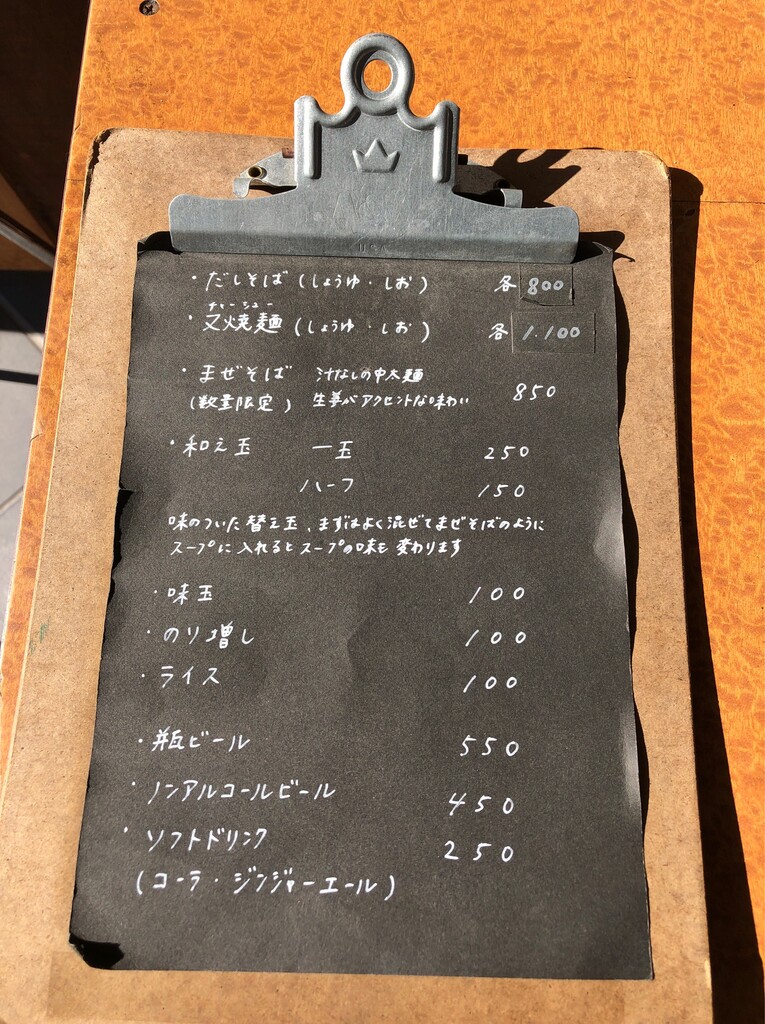 ・だしそば(しょうゆ・しお) 各 800
チャーシュー
・叉焼麺(しょうゆ・しお) 各 1.100
・まぜそば 汁なしの中太麺
(数量限定) 生姜がアクセントな味わい 850
・和え玉 一玉 250
ハーフ 150
味のついた替え玉、まずはよく混ぜてまぜそばのように
スープに入れるとスープの味も変わります
・味玉 100
・のり増し 100
・ライス 100
・瓶ビール 550
・ノンアルコールビール 450
・ソフトドリンク 250
(コーラ・ジンジャーエール)